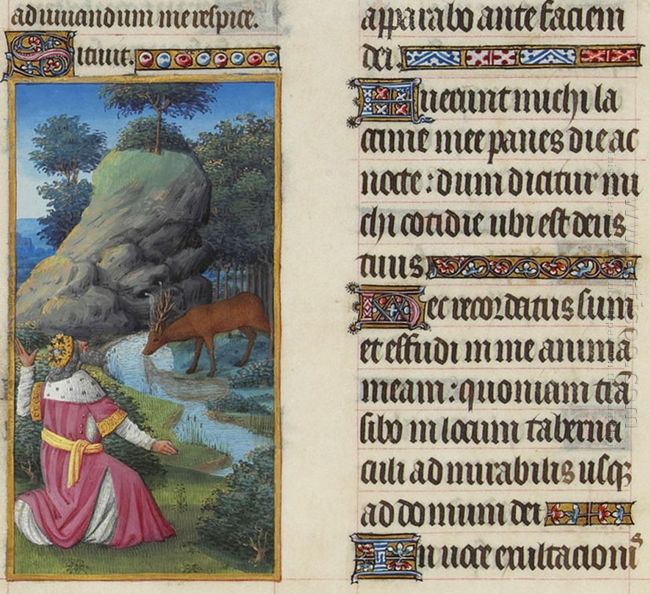 adiuuandum me respice.
Sitiuit.
apparabo ante faciem
dei
Fuerunt michi la
crime mee panes die ac
nocte: dum dicitur mi
chi cotidie ubi est deus
tuus
Hec recordatus sum
et effudi in me anima
meam: quoniam trā
sibo in locum taberna
culi admirabilis usq
ad domum dei
In uoce exultacionis